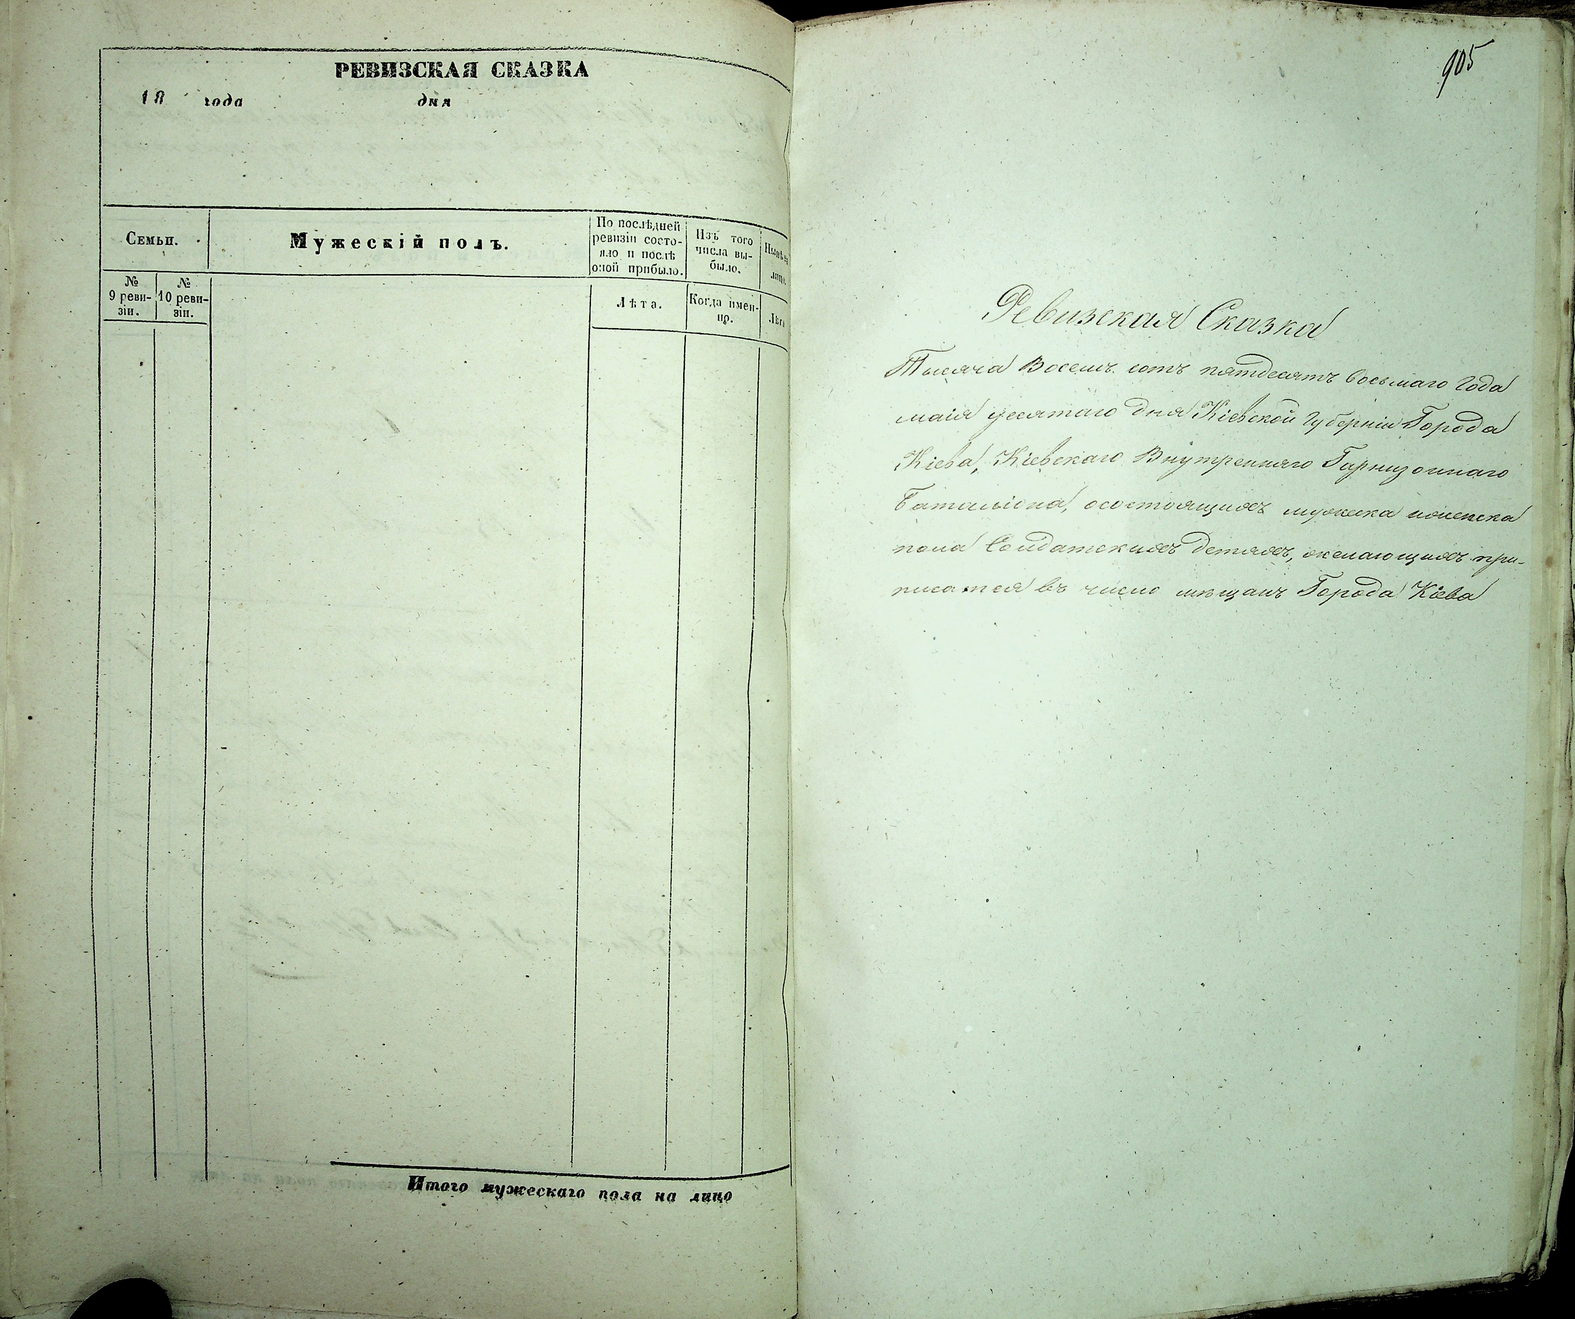 РЕВИЗСКАЯ СКАЗКА
18 года дня
Семьи.
Мужескій полъ.
По послѣдней
ревизіи состо-
яло и послѣ
оной прибыло.
Изъ того
числа вы-
было.
№
9 реви-
зіи.
№
10 реви-
зіи.
Лѣта.
Когда имен-
но.
Итого мужескаго пола на лицо
905
Ревизская Сказка
Тысяча Восемъ сотъ пятдесятъ восьмаго года
маія десятаго дня Кіевской Губерніи Города
Кіева, Кіевскаго Внутренняго Гарнизоннаго
Баталіона, о состоящихъ мужеска и женска
пола Солдатскихъ детяхъ, желающихъ при-
писатся въ число мещанъ Города Кіева